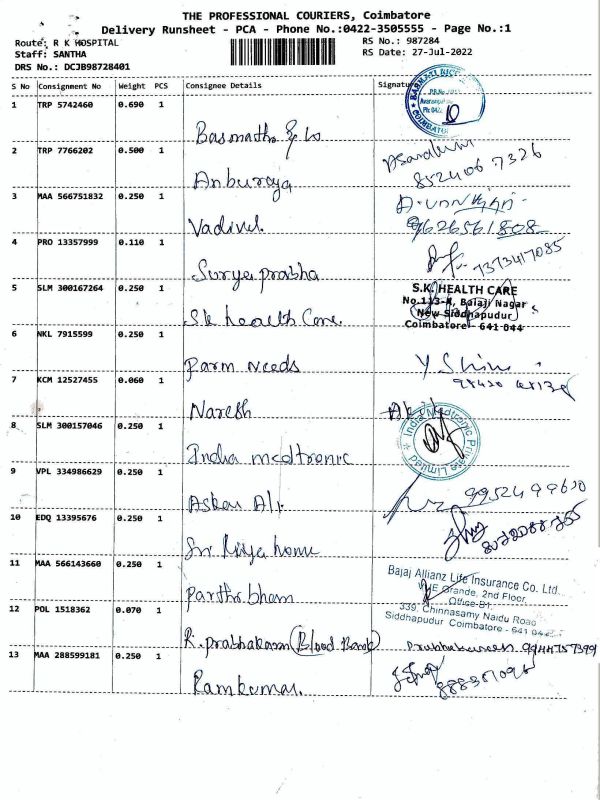 THE PROFESSIONAL COURIERS, Coimbatore
Delivery Runsheet - PCA - Phone No.:0422-3505555 - Page No.:1
Route: R K HOSPITAL
RS No.: 987284
Staff: SANTHA
RS Date: 27-Jul-2022
DRS No.: DCJB98728401
S No Consignment No Weight PCS Consignee Details Signature
1 TRP 5742460 0.690 1
COIMBATORE
2 TRP 7766202 0.500 1
Anburaja
3 MAA 566751832 0.250 1
Vadivel
9626561808
4 PRO 13357999 0.110 1
7373417085
Surya prabha
5 SLM 300167264 0.250 1
S.K. HEALTH CARE
No.113-H, Balaji Nagar
New Siddhapudur
Coimbatore - 641 044
S.k health Care.
6 NKL 7915599 0.250 1
Parm Needs
7 KCM 12527455 0.060 1
Naresh
8 SLM 300157046 0.250 1
India Medtronic Private Limited
India medtronic
9 VPL 334986629 0.250 1
Askar Ali
10 EDQ 13395676 0.250 1
11 MAA 566143660 0.250 1
Bajaj Allianz Life Insurance Co. Ltd.,
Grande, 2nd Floor,
Office-B1,
339, Chinnasamy Naidu Road
Siddhapudur Coimbatore - 641 044
12 POL 1518362 0.070 1
R. prabhakaran (Blood Bank)
13 MAA 288599181 0.250 1
Ramkumar.